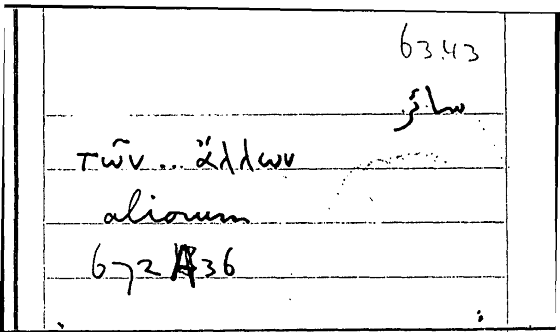 63.43
سائر
τῶν... ἄλλων
aliorum
672 A 36